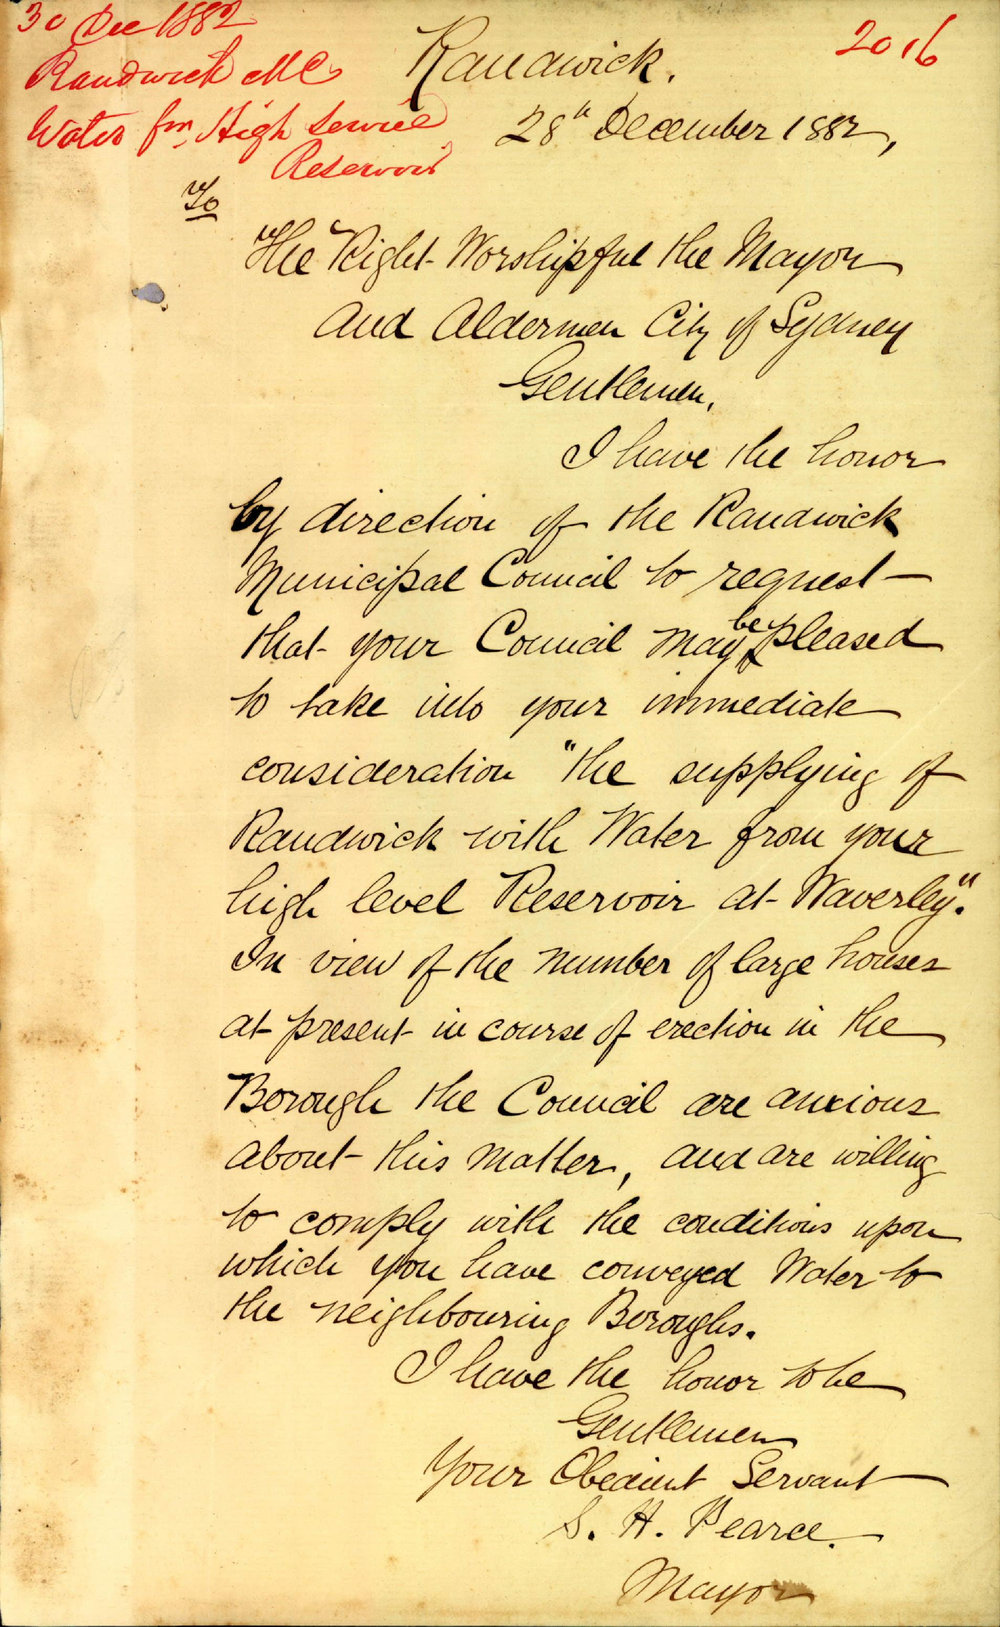 30 Dec 1882
Randwick MC
Water fm High Service
Reservoir
2016
Randwick.
28th December 1882,
To
The Right Worshipful the Mayor
and Aldermen City of Sydney
Gentlemen,
I have the honor
by direction of the Randwick
Municipal Council to request
that your Council may be pleased
to take into your immediate
consideration "the supplying of
Randwick with Water from your
high level Reservoir at Waverley".
In view of the number of large houses
at present in course of erection in the
Borough the Council are anxious
about this matter, and are willing
to comply with the conditions upon
which you have conveyed Water to
the neighbouring Boroughs.
I have the honor to be
Gentlemen
Your Obedient Servant
S. H. Pearce.
Mayor